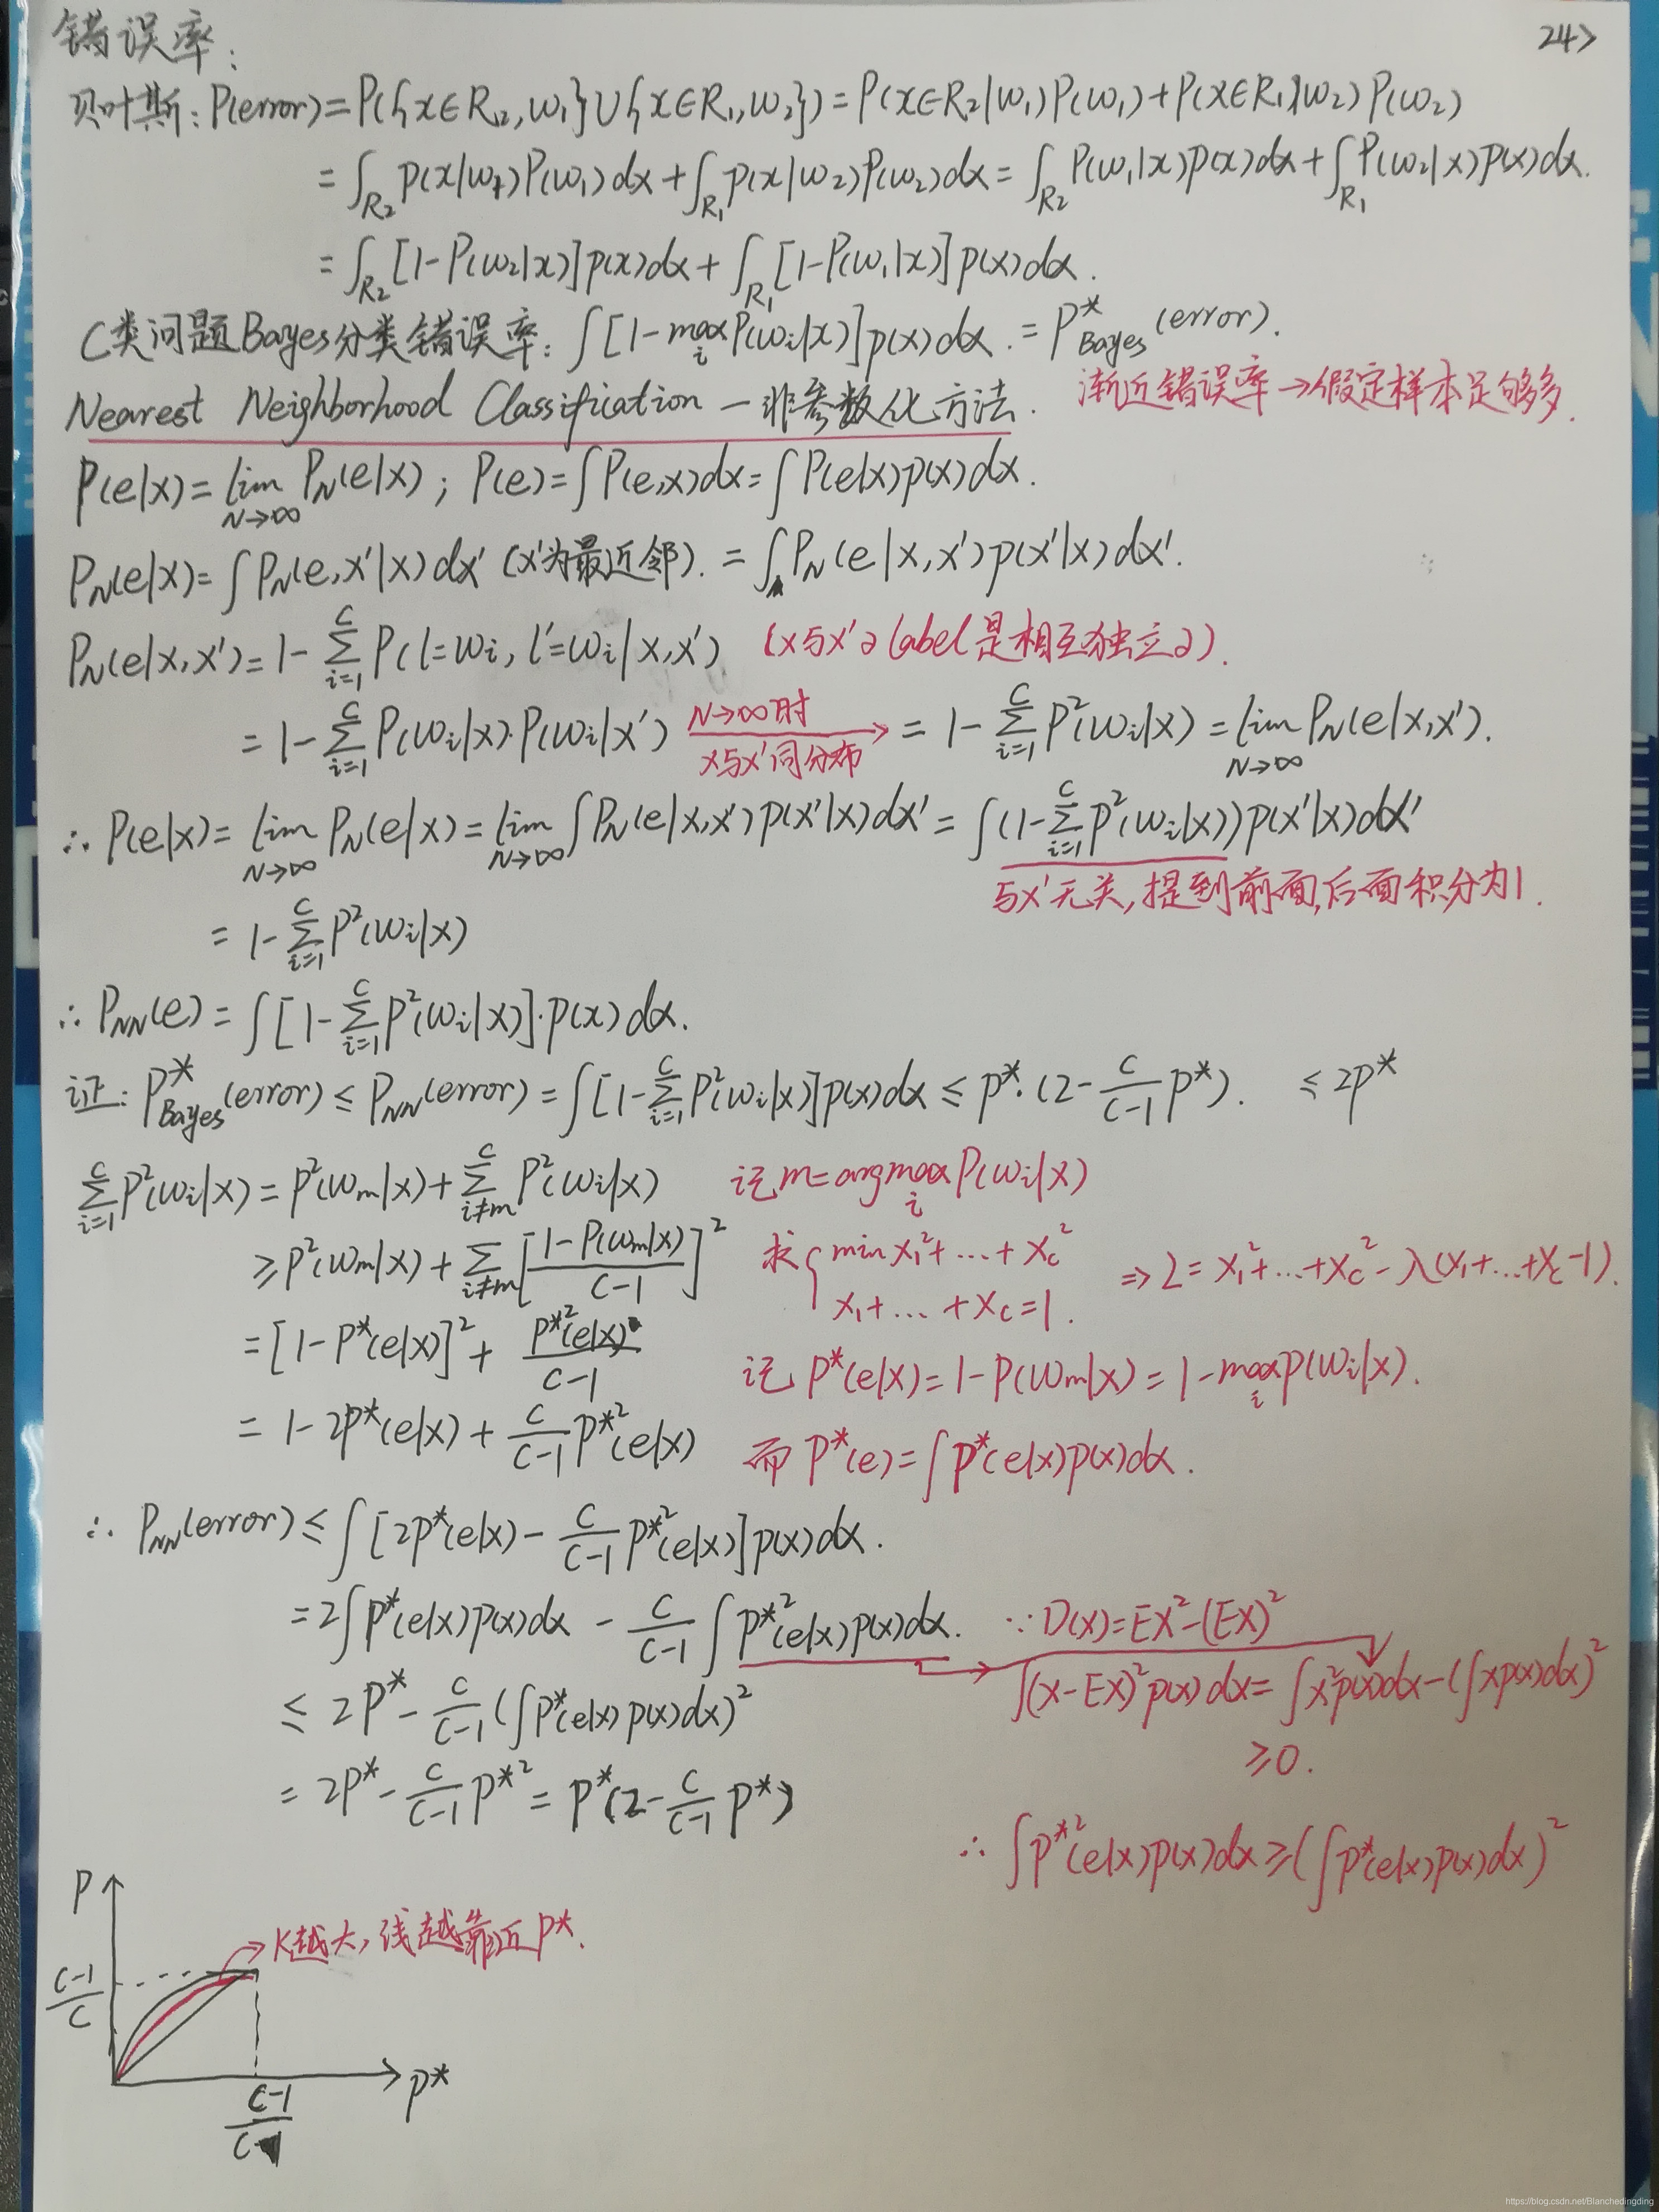 错误率: 24>
贝叶斯: P(error)=P({x∈R₂,w₁}∪{x∈R₁,w₂})=P(x∈R₂|w₁)P(w₁)+P(x∈R₁|w₂)P(w₂)
=∫_{R₂} p(x|w₁)P(w₁)dx+∫_{R₁} p(x|w₂)P(w₂)dx=∫_{R₂} P(w₁|x)p(x)dx+∫_{R₁} P(w₂|x)p(x)dx.
=∫_{R₂} [1-P(w₂|x)]p(x)dx+∫_{R₁} [1-P(w₁|x)]p(x)dx.
C类问题Bayes分类错误率: ∫[1-max_i P(wi|x)]p(x)dx.=P*_{Bayes}(error).
Nearest Neighborhood Classification—非参数化方法. 渐近错误率→假定样本足够多.
P(e|x)=lim_{N→∞} P_N(e|x); P(e)=∫P(e,x)dx=∫P(e|x)p(x)dx.
P_N(e|x)=∫P_N(e,x'|x)dx' (x'为最近邻).=∫P_N(e|x,x')p(x'|x)dx'.
P_N(e|x,x')=1-∑_{i=1}^{C} P(l=wi, l'=wi|x,x') (x与x'の label 是相互独立の).
=1-∑_{i=1}^{C} P(wi|x)·P(wi|x') N→∞时 x与x'同分布 → =1-∑_{i=1}^{C} P²(wi|x)=lim_{N→∞} P_N(e|x,x').
∴ P(e|x)=lim_{N→∞} P_N(e|x)=lim_{N→∞} ∫P_N(e|x,x')p(x'|x)dx'=∫(1-∑_{i=1}^{C} P²(wi|x))p(x'|x)dx'
与x'无关,提到前面,后面积分为1.
=1-∑_{i=1}^{C} P²(wi|x)
∴ P_{NN}(e)=∫[1-∑_{i=1}^{C} P²(wi|x)]·p(x)dx.
证: P*_{Bayes}(error)≤P_{NN}(error)=∫[1-∑_{i=1}^{C} P²(wi|x)]p(x)dx≤P*·(2-C/(C-1) P*). ≤2P*
∑_{i=1}^{C} P²(wi|x)=P²(wm|x)+∑_{i≠m}^{C} P²(wi|x) 记 m=argmax_i P(wi|x)
≥P²(wm|x)+∑_{i≠m} [(1-P(wm|x))/(C-1)]² 求{ min x₁²+...+x_C² ⇒ L=x₁²+...+x_C²-λ(x₁+...+x_C-1).
x₁+...+x_C=1.
=[1-P*(e|x)]²+P*²(e|x)/(C-1) 记 P*(e|x)=1-P(wm|x)=1-max_i P(wi|x).
=1-2P*(e|x)+C/(C-1) P*²(e|x) 而 P*(e)=∫P*(e|x)p(x)dx.
∴ P_{NN}(error)≤∫[2P*(e|x)-C/(C-1) P*²(e|x)]p(x)dx.
=2∫P*(e|x)p(x)dx-C/(C-1) ∫P*²(e|x)p(x)dx. ∵D(X)=EX²-(EX)²
→ ∫(x-EX)²p(x)dx=∫x²p(x)dx-(∫xp(x)dx)²
≤2P*-C/(C-1) (∫P*(e|x)p(x)dx)²
≥0.
=2P*-C/(C-1) P*²=P*(2-C/(C-1) P*)
∴ ∫P*²(e|x)p(x)dx≥(∫P*(e|x)p(x)dx)²
P
K越大,线越靠近P*.
(C-1)/C
P*
C-1
https://blog.csdn.net/Blanchedingding